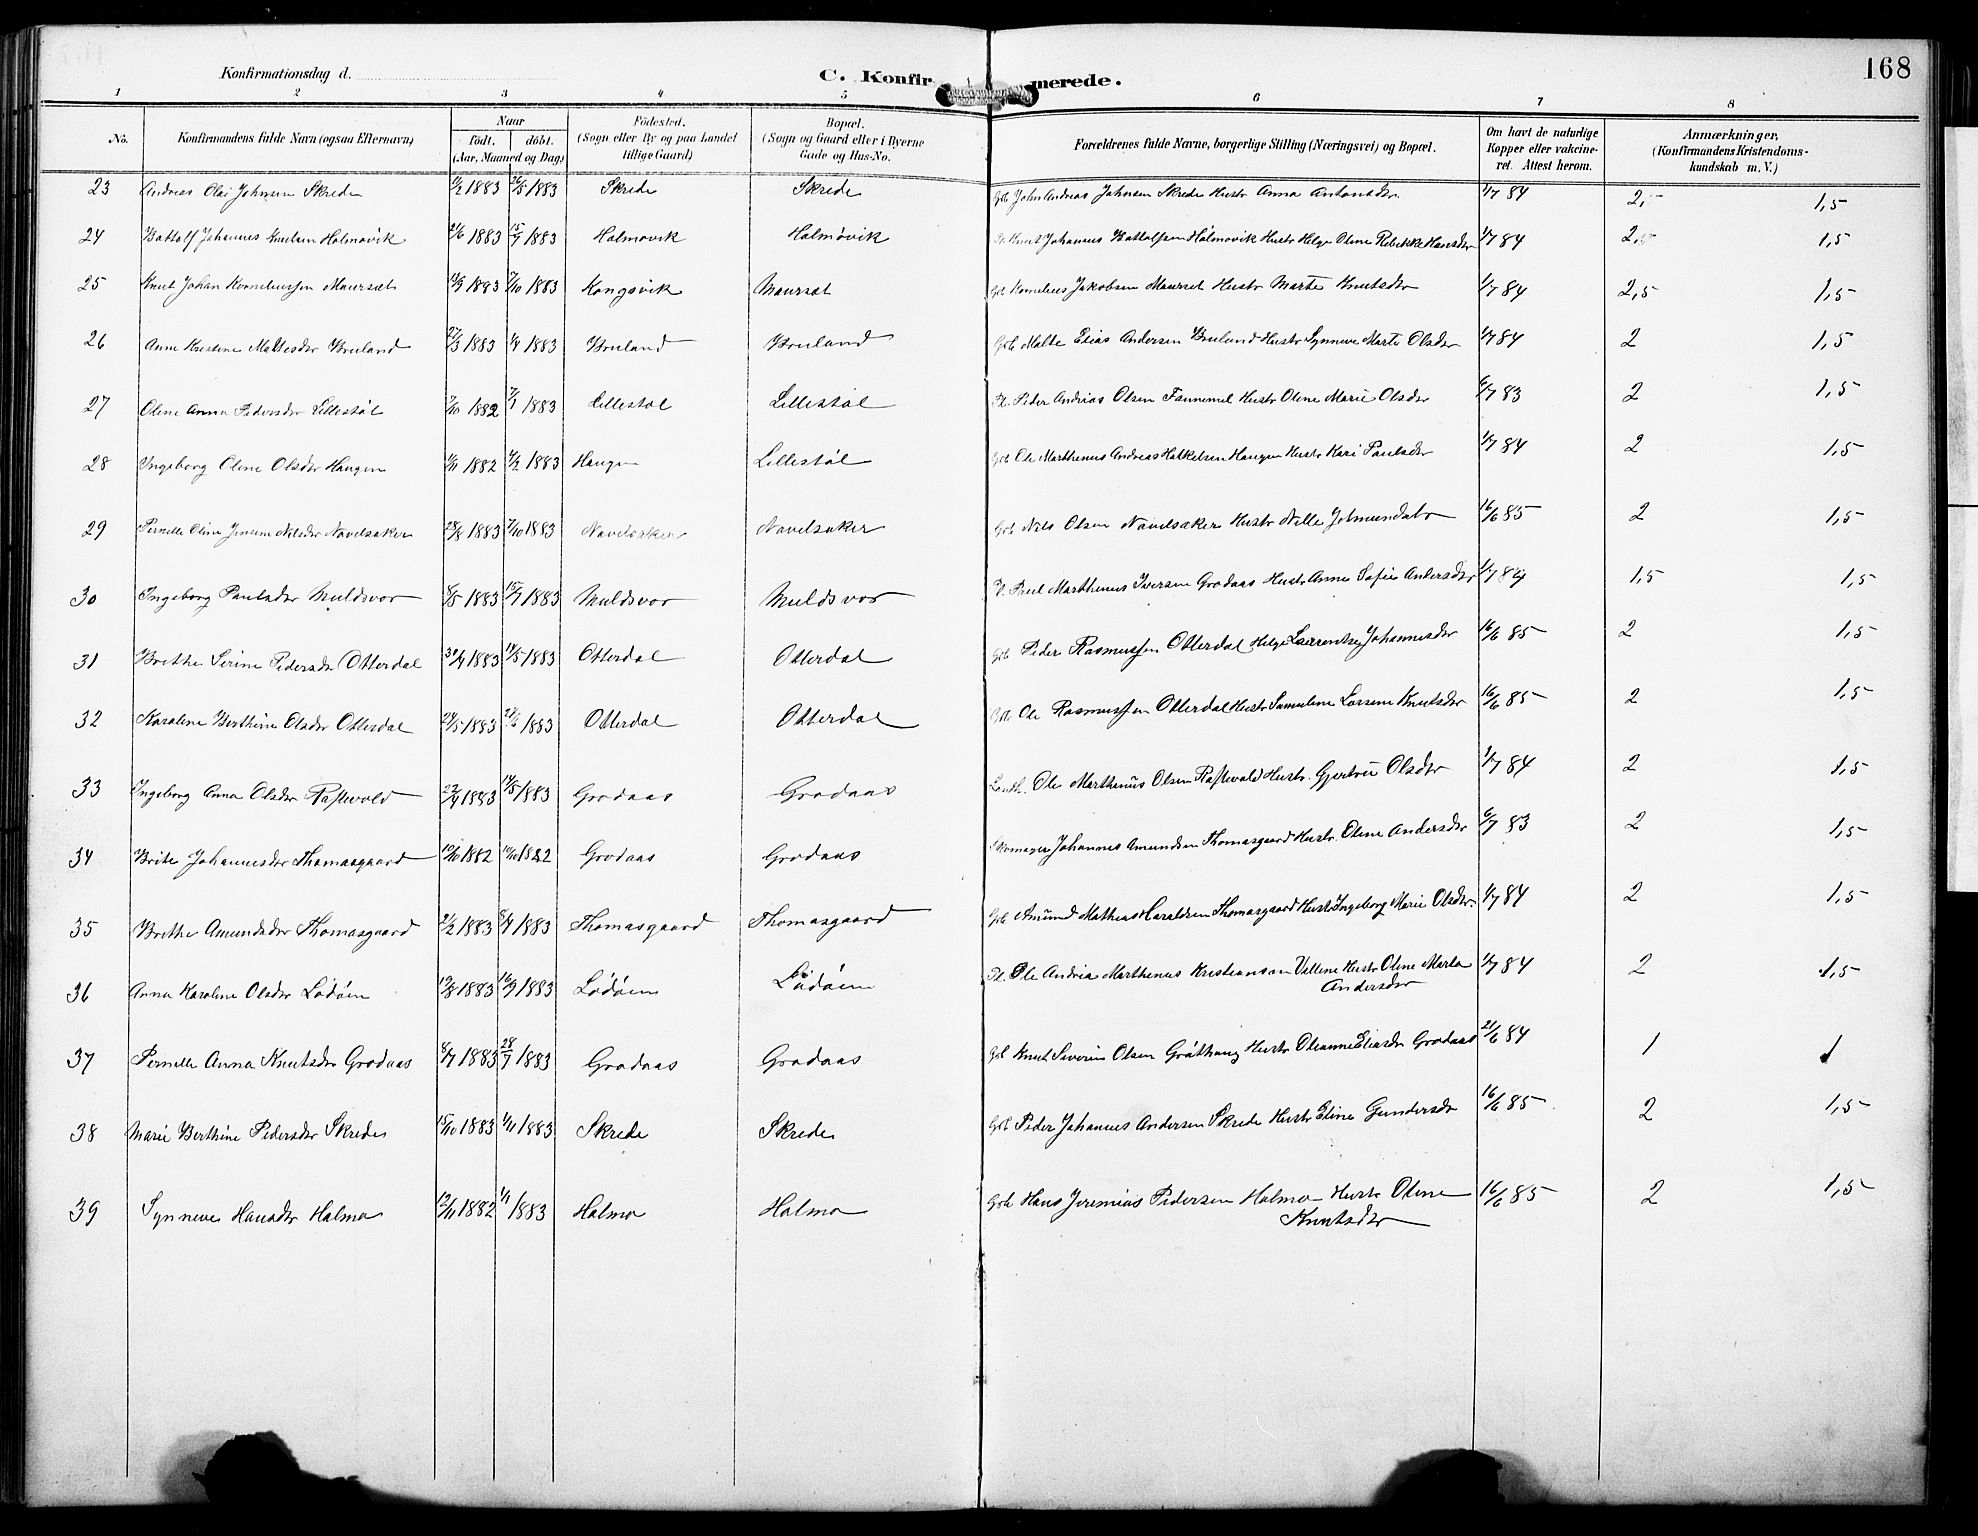 168
Konfirmationsdag d. C. Konfirmerede.
1 2 3 4 5 6 7 8
No. Konfirmandens fulde Navn (ogsaa Efternavn) Naar født. døbt. (Aar, Maaned og Dag) Fødested. (Sogn eller By og paa Landet tillige Gaard) Bopæl. (Sogn og Gaard eller i Byerne Gade og Hus-No. Forældrenes fulde Navne, borgerlige Stilling (Næringsvei) og Bopæl. Om havt de naturlige Kopper eller vakcineret. Attest herom. Anmærkninger, (Konfirmandens Kristendomskundskab m. V.)
23 Andreas Olai Johnsen Skrede 1883 26/8 1883 Skrede Skrede Gbr John Andreas Johnsen Skrede Hustr Anna Antonsdr. 1/7 84 2,- 1,5
24 Battolf Johannes Knutsen Holmøvik 21/6 1883 15/7 1883 Holmøvik Holmøvik Knut Johannes Battolfsen Holmøvik Hustr Helge Oline Rebekke Hansdr 1/7 84 1,5
25 Knut Johan Korneliussen Maurset 1883 7/10 1883 Kongsvik Maurset Gbr Kornelius Jakobsen Maurset Hustr Marte Knutsdtr 1/7 84 2,5 1,5
26 Anne Kristine Maltesdr Bruland 27/3 1883 1883 Bruland Bruland Gbr Malte Elias Andersen Bruland Hustr Synneve Marte Olsdr 1/7 84 2 1,5
27 Oline Anna Pedersdr Lillestøl 7/10 1882 7/1 1883 Lillestøl Lillestøl Pl. Peder Andrias Olsen Hustr Oline Marie Olsdr 6/7 83 2 1,5
28 Ingeborg Oline Olsdr Haugen 1882 4/2 1883 Haugen Lillestøl Gbr Ole Marthenus Andreas Haugen Hustr Kari Paulsdr 1/7 84 2 1,5
29 Pernille Oline Jensine Nilsdr Navelsaker 28/8 1883 7/10 1883 Navelsaker Navelsaker Gbr Nils Olsen Navelsaker Hustr Nille 16/6 85 2 1,5
30 Ingeborg Paulsdr Muldsvor 1883 15/7 1883 Muldsvor Muldsvor Marthenus Iversen Grodaas Hustr Anne Sofie Andersdr 1/7 84 1,5 1,5
31 Brithe Serine Pedersdr Otterdal 30/4 1883 14/5 1883 Otterdal Otterdal Gbr Peder Rasmussen Otterdal Helge Johannesdr 16/6 85 2 1,5
32 Karoline Berthine Olsdr Otterdal 24/5 1883 1883 Otterdal Otterdal Gbr Ole Rasmussen Otterdal Hustr Samueline Larsine Knutsdr 16/6 85 2 1,5
33 Ingeborg Anna Olsdr Raftevold 22/4 1883 14/5 1883 Grodaas Grodaas Landh. Ole Marthenus Olsen Raftevold Hustr. Gjertru Olsdr 1/7 84 2 1,5
34 Brite Johannesdr Thomasgaard 1882 1882 Grodaas Grodaas Skomager Johannes Amundsen Thomasgaard Hustr. Oline Andersdr 6/7 83 2 1,5
35 Brithe Amundsdr Thomasgaard 21/2 1883 8/4 1883 Thomasgaard Thomasgaard Gbr Amund Mathias Haraldsen Thomasgaard Hustr Ingeborg Marie Olsdr. 1/7 84 2 1,5
36 Anna Karoline Olsdr Lødøen 19/8 1883 16/9 1883 Lødøen Lødøen Pl. Ole Andria Marthenus Kristiansen Hustr Oline Marta Andersdr 1/7 84 2 1,5
37 Pernille Anna Knutsdr Grodaas 8/7 1883 28/7 1883 Grodaas Grodaas Gbr Knut Severin Olsen Hustr Olianne Eliasdr Grodaas 21/6 84 1 1
38 Marie Berthine Pedersdr Skrede 15/10 1883 1/11 1883 Skrede Skrede Gbr Peder Johannes Andersen Skrede Hustr Eline Gundersdr 16/6 85 2 1,5
39 Synneve Hansdr Holmo 12/11 1882 1/1 1883 Holmo Holmo Gbr Hans Jeremias Pedersen Holmo Hustr Oline Knutsdtr 16/6 85 2 1,5